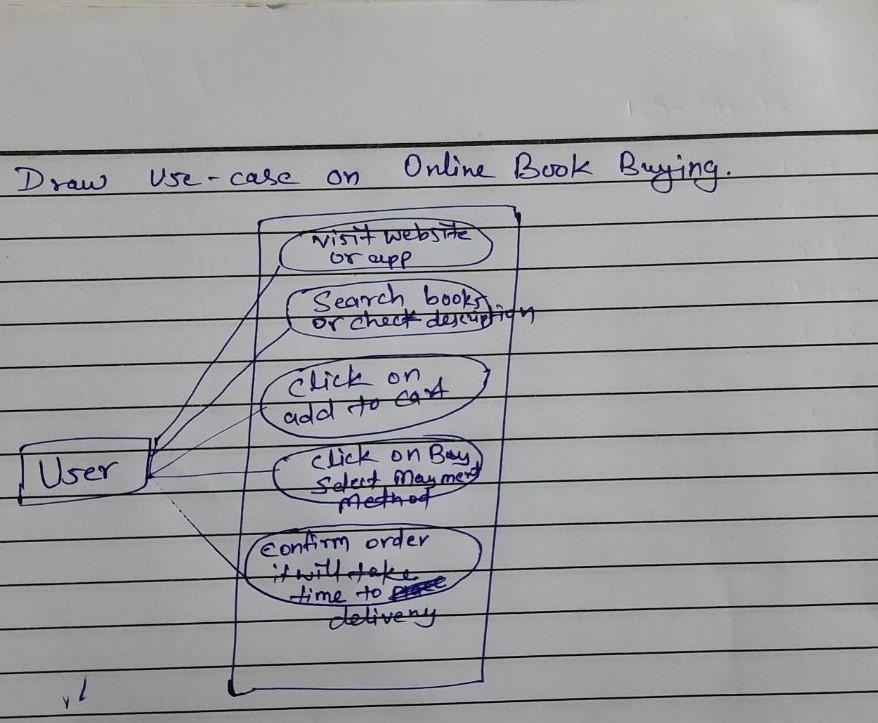 Draw Use-case on Online Book Buying.
Visit website
or app
Search books
or check description
Click on
add to cart
User
Click on Buy
Select Mayment
Method
Confirm order
it will take
time to
delivery